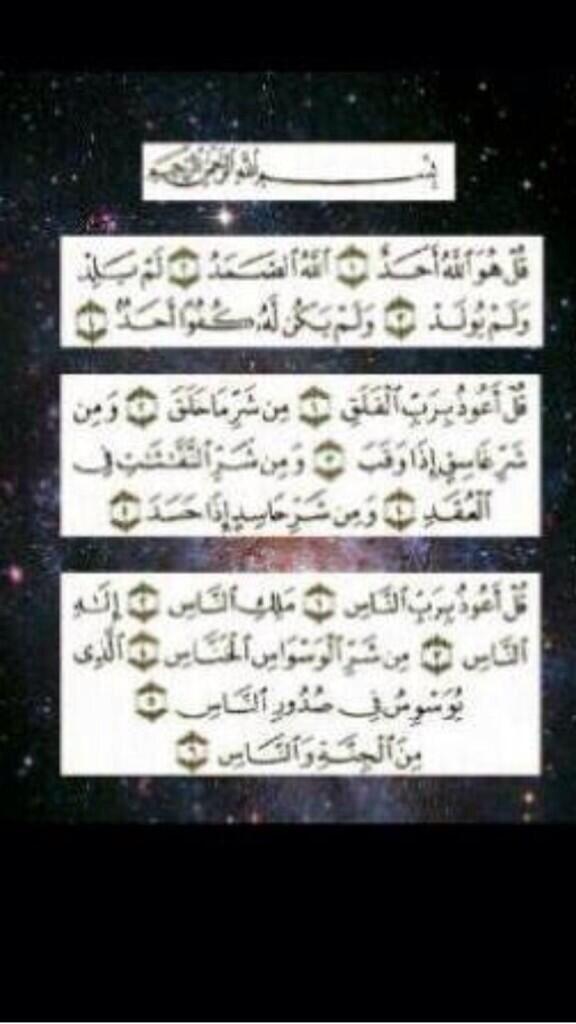 بِسْمِ اللَّهِ الرَّحْمَٰنِ الرَّحِيمِ
قُلْ هُوَ ٱللَّهُ أَحَدٌ ١ ٱللَّهُ ٱلصَّمَدُ ٢ لَمْ يَلِدْ
وَلَمْ يُولَدْ ٣ وَلَمْ يَكُن لَّهُۥ كُفُوًا أَحَدٌۢ ٤
قُلْ أَعُوذُ بِرَبِّ ٱلْفَلَقِ ١ مِن شَرِّ مَا خَلَقَ ٢ وَمِن
شَرِّ غَاسِقٍ إِذَا وَقَبَ ٣ وَمِن شَرِّ ٱلنَّفَّٰثَٰتِ فِى
ٱلْعُقَدِ ٤ وَمِن شَرِّ حَاسِدٍ إِذَا حَسَدَ ٥
قُلْ أَعُوذُ بِرَبِّ ٱلنَّاسِ ١ مَلِكِ ٱلنَّاسِ ٢ إِلَٰهِ
ٱلنَّاسِ ٣ مِن شَرِّ ٱلْوَسْوَاسِ ٱلْخَنَّاسِ ٤ ٱلَّذِى
يُوَسْوِسُ فِى صُدُورِ ٱلنَّاسِ ٥
مِنَ ٱلْجِنَّةِ وَٱلنَّاسِ ٦